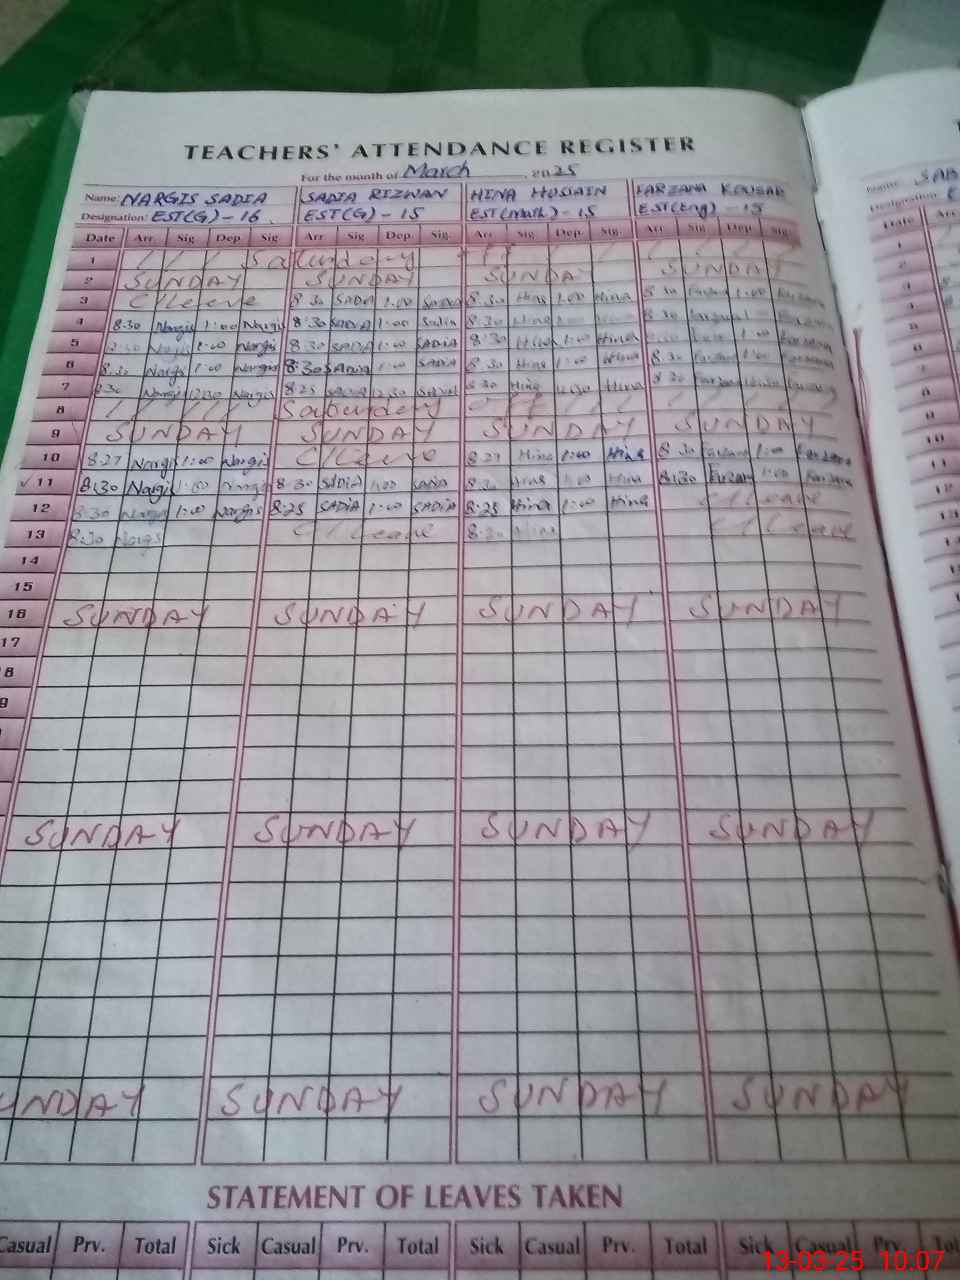 TEACHERS' ATTENDANCE REGISTER
For the month of March, 2025
Name: NARGIS SADIA SADIA RIZWAN HINA HUSSAIN FARZANA KOUSAR SAB
Designation: EST(G) - 16 EST(G) - 15 EST(Math) - 15 EST(Eng) - 15
Date Arr. Sig. Dep. Sig. Arr. Sig. Dep. Sig. Arr. Sig. Dep. Sig. Arr. Sig. Dep. Sig. Date
1
2 SUNDAY SUNDAY SUNDAY SUNDAY
3 C/Leave 8:30 SADIA 1:00 Sadia 8:30 Hina 1:00 Hina 8:30 1:00
4 8:30 Nargis 1:00 Nargis 8:30 SADIA 1:00 Sadia 8:30 Hina 1:00 8:30
5 Nargis 1:00 Nargis 8:30 SADIA 1:00 SADIA 8:30 Hina 1:00 Hina 1:00
6 8:30 Nargis 1:00 Nargis 8:30 SADIA 1:00 SADIA 8:30 Hina 1:00 Hina 8:30 1:00
7 8:30 Nargis 12:30 Nargis 8:25 SADIA 12:30 8:30 Hina 12:30 Hina 8:30
8
9 SUNDAY SUNDAY SUNDAY SUNDAY
10 8:27 Nargis 1:00 Nargis C/Leave 8:27 Hina 1:00 Hina 8:30 1:00
11 8:30 Nargis 1:00 Nargis 8:30 SADIA 1:00 SADIA 8:30 Hina 1:00 Hina 8:30 1:00
12 8:30 Nargis 1:00 Nargis 8:25 SADIA 1:00 SADIA 8:25 Hina 1:00 Hina C/Leave
13 8:30 Nargis C/Leave 8:30 Hina C/Leave
14
15
16 SUNDAY SUNDAY SUNDAY SUNDAY
17
8
9
SUNDAY SUNDAY SUNDAY SUNDAY
UNDAY SUNDAY SUNDAY SUNDAY
STATEMENT OF LEAVES TAKEN
Casual Prv. Total Sick Casual Prv. Total Sick Casual Prv. Total Sick Casual Prv. Tot
13-03-25 10:07